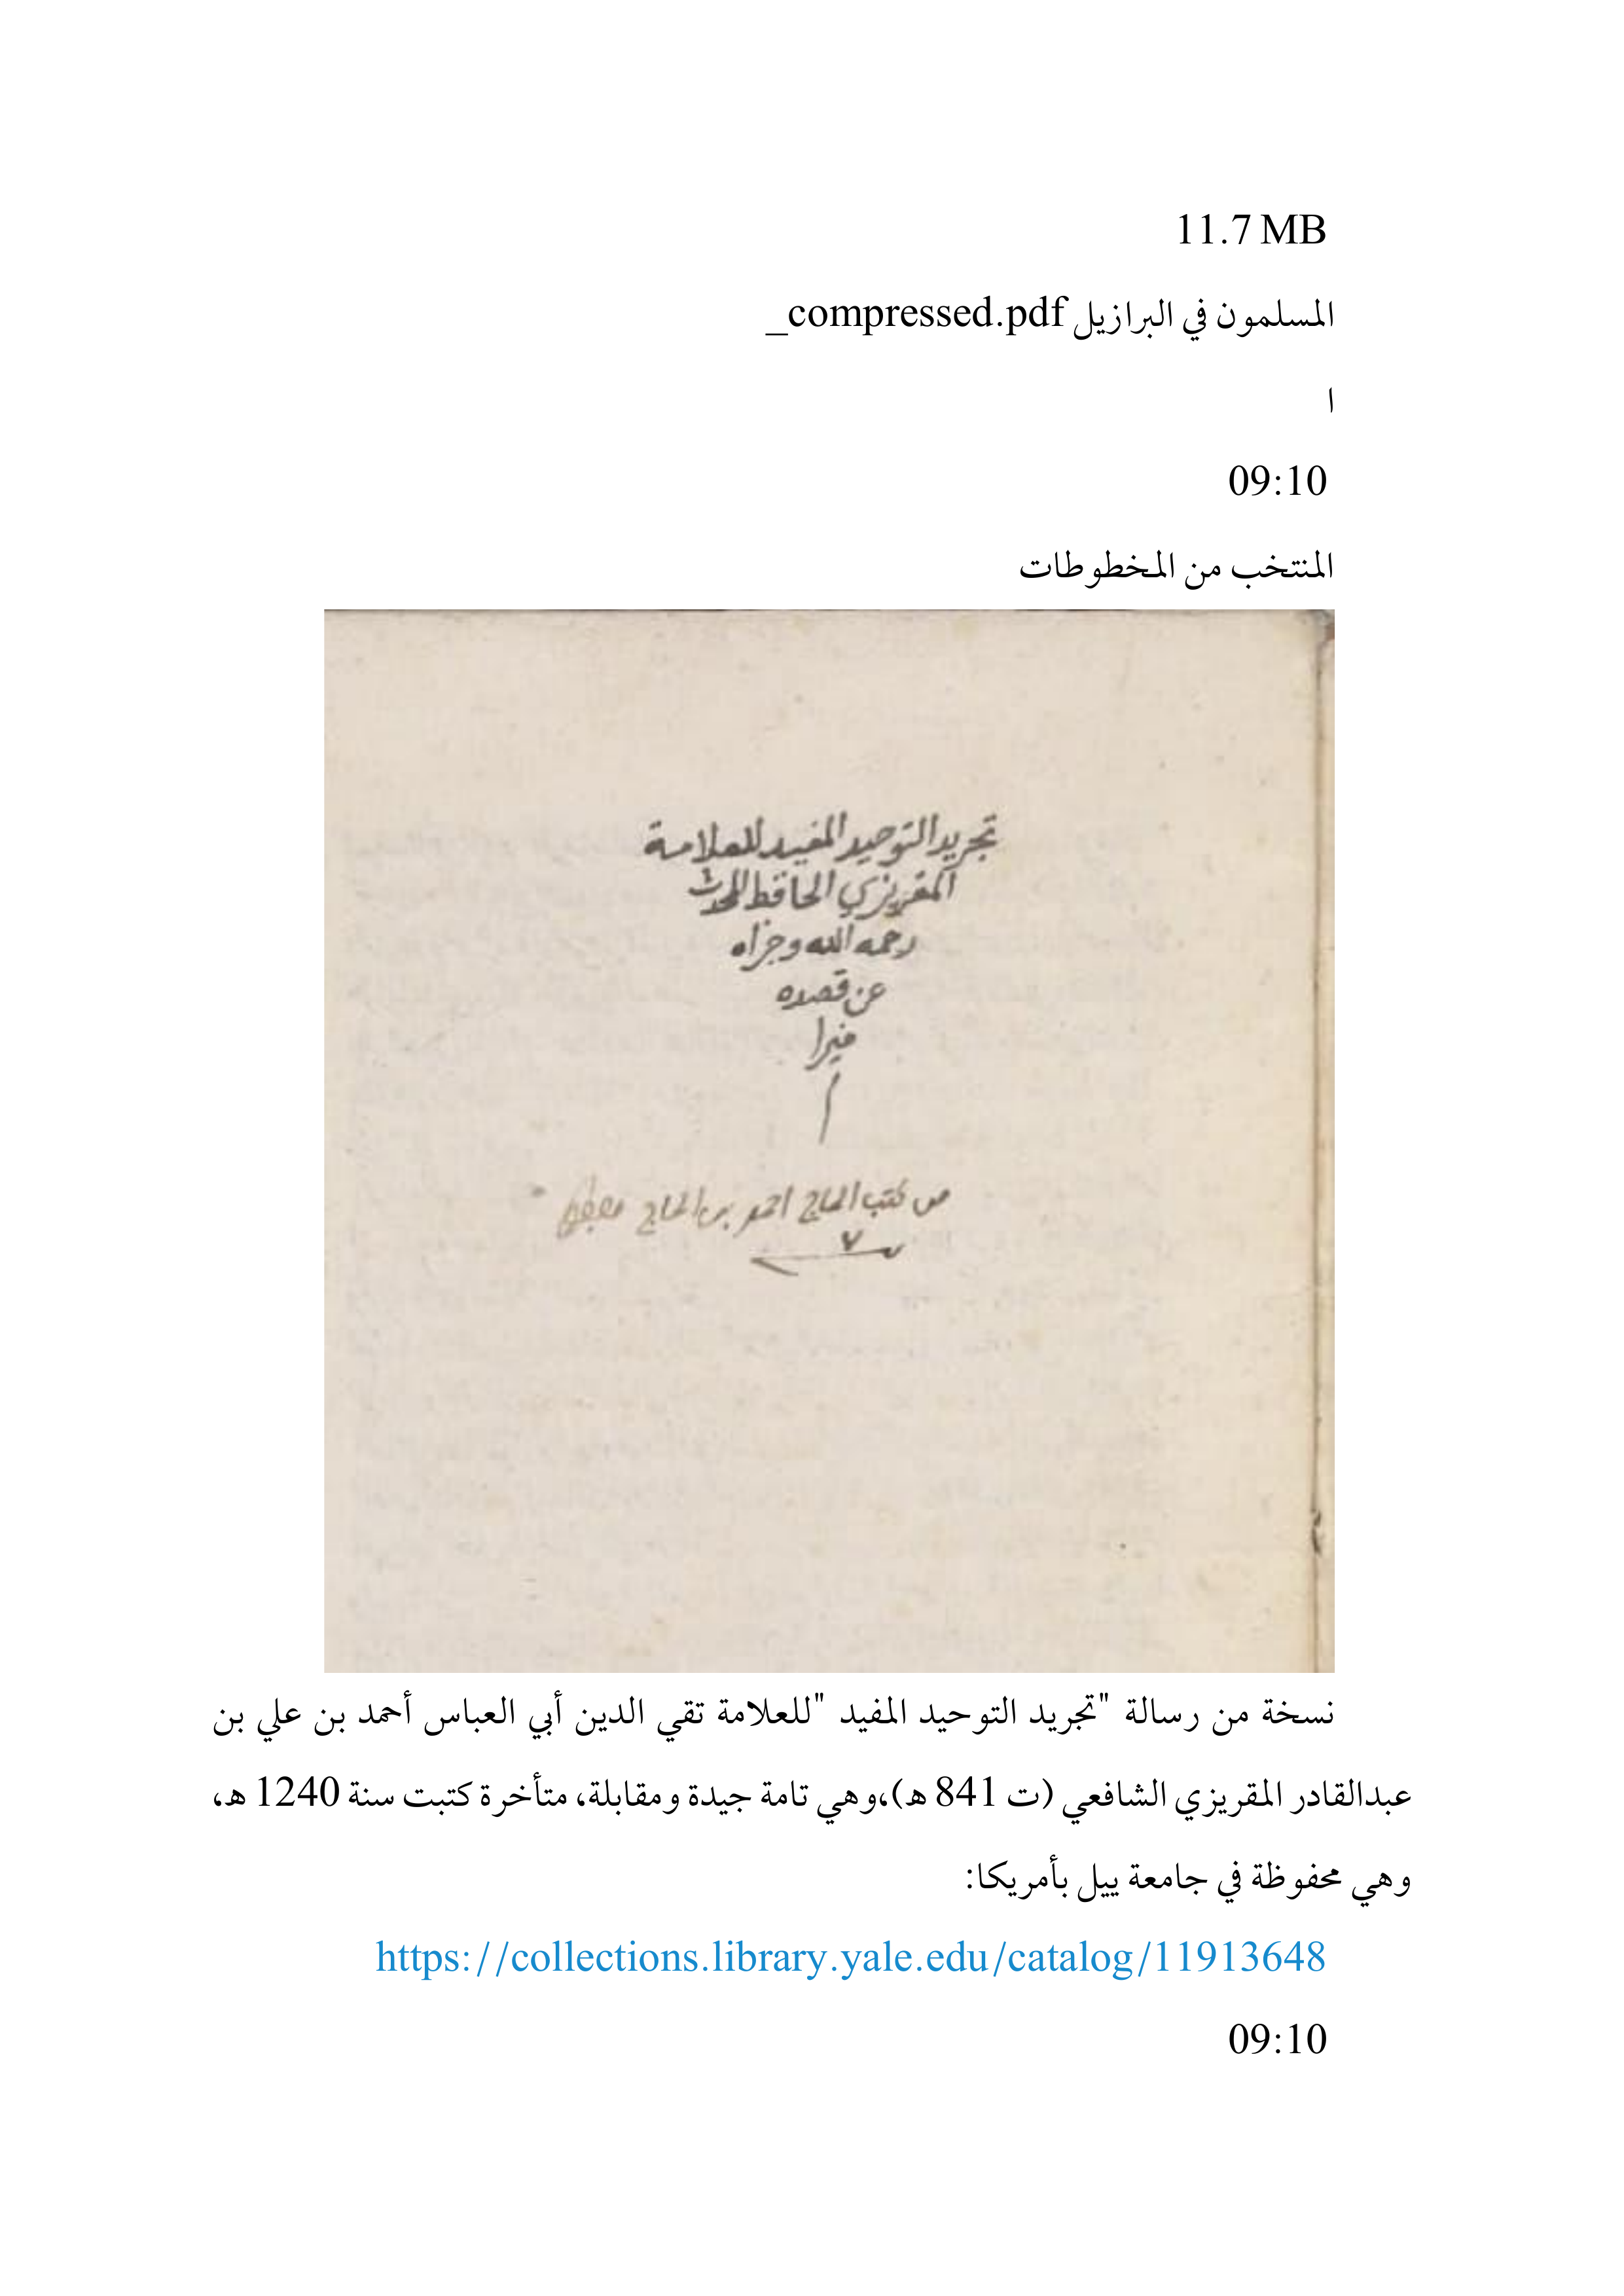 11.7 MB
المسلمون في البرازيل compressed.pdf_
ا
09:10
المنتخب من المخطوطات
تجريد التوحيد المفيد للعلامة
المقريزي الحافظ المحدث
رحمه الله وجزاه
عن قصده
خيرا
من كتب الحاج احمد بن الحاج
نسخة من رسالة "تجريد التوحيد المفيد "للعلامة تقي الدين أبي العباس أحمد بن علي بن
عبدالقادر المقريزي الشافعي (ت 841 ه)،وهي تامة جيدة ومقابلة، متأخرة كتبت سنة 1240 ه،
وهي محفوظة في جامعة ييل بأمريكا:
https://collections.library.yale.edu/catalog/11913648
09:10